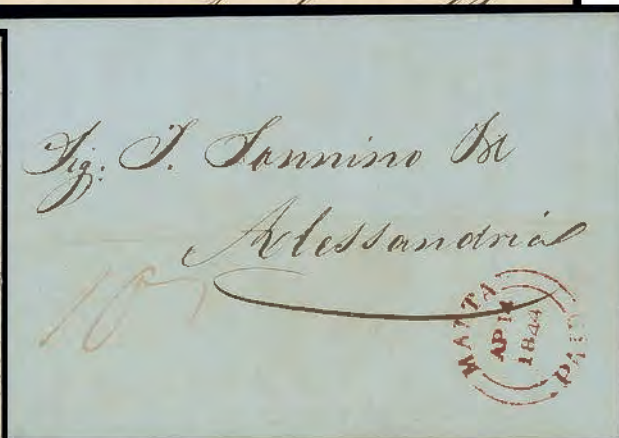 Sig: J. Sonnino
Alessandria
MALTA
AP 14
1844
PAID